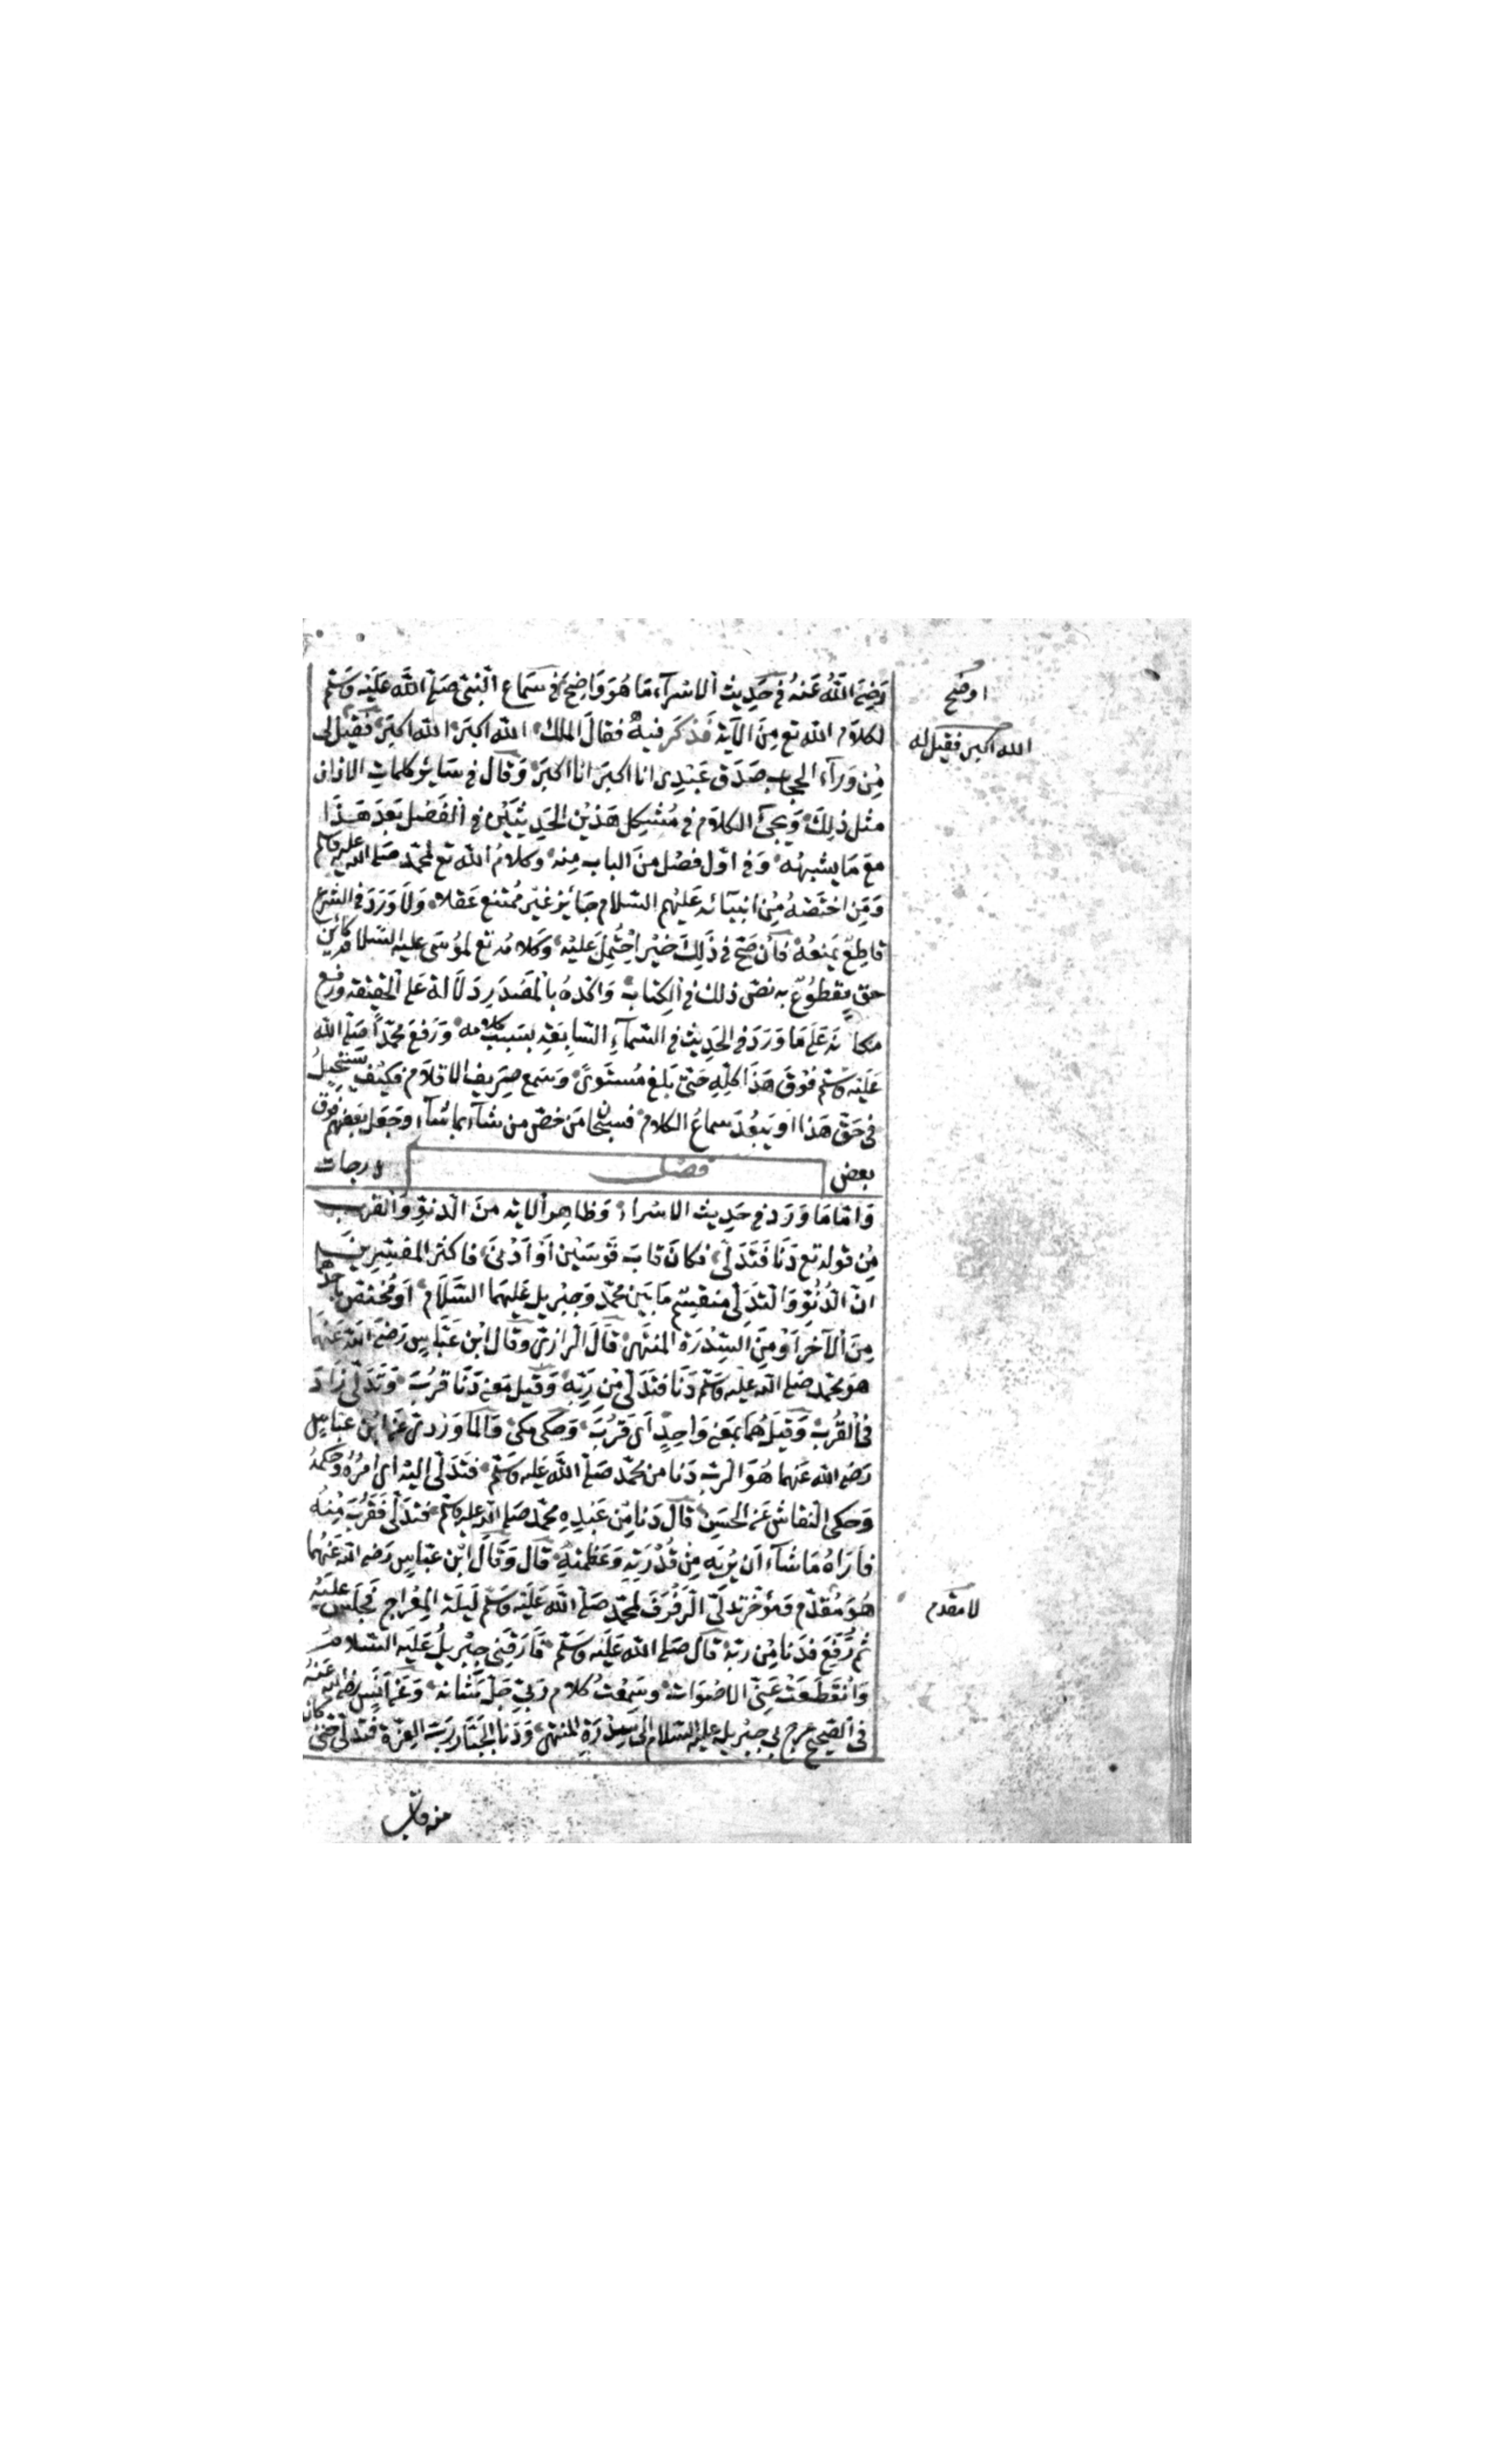 رَضِيَ اللّٰهُ عَنْهُ فِي حَدِيثِ الْاِسْرَآءِ مَا هُوَ وَاضِحٌ فِي سَمَاعِ النَّبِيِّ صَلَّى اللّٰهُ عَلَيْهِ وَسَلَّم
اوضح
لكلام الله تع مِنَ الآية فَذكَر فيهِ فقالَ الملك الله اكبرَ الله اكبرَ فَقِيلَ لى
الله اكبر فقيل له
مِنْ وَرَآءِ الحجاب صَدَق عَبْدِى انا اكبرَ انا اكبرَ وَقَال فى سَائِر كلماتِ الاذان
مثل ذلِكَ وَيجئُ الكلَام فى مُشْكِل هَذيْن الحَدِيثَيْن فى الفَصْلِ بَعدَ هَذَا
مع مَا يشبهُه وَفى اوّل فَصْل منَ الباب مِنه وَكلامُ الله تع لمحمّد صلى الله عليه وسلم
وَمَن اختَصّهُ مِن انبيَآئه عَليْهم السّلام جَائِز غَيْر مُمتنع عَقلاً وَلَا وَرَدَ فى الشرع
قاطِعٌ يَمنعُه فاِن صَحّ فى ذَلِكَ خَبْر احْتُمِلَ عَليْه وَكلامُه تع لمُوسَى عليه السّلام كاين
حق مقطوُعٌ به نصّ ذلك فى الكِتابْ وَاكّدهُ بالمَصْدَر دَلَالة عَلى الحقيقة ورفع
مكانَه عَلى مَا وَرَدَ فى الحَدِيث فى السّمآءِ السَّابِعَة بسَبب كلامه وَرَفعَ محمّداً صَلى الله
عَليْه وَسَلّم فَوْقَ هَذَا كلِّهِ حَتّى بَلغ مُسْتوىً وَسَمع صرِيف الاقلَام فكيْف يستحيلُ
فى حَقّ هَذا اَو يَبعُدَ سماعُ الكلام فسبحان مَنْ خصّ من شآء بما شآء وَجَعَل بعضهم فوق
بعض فصل درجات
وَاَمّا مَا وَرَدَ فى حَدِيث الاسْراء وَظاهِر الاية منَ الدّنوّ وَالقرب
مِنْ قوله تع دَنَا فَتَدَلّى فكانَ قابَ قَوْسَيْن اَوْ اَدْنىَ فاكثر المفسّرينَ
انّ الدُّنُوّ وَالتدَلّى منقسِم مَا بَين محمّد وَجِبْريل عَليْهما السّلَام اَو مُختصّ باحدهما
مِنَ الآخر اَوْ منَ السِّدْرَة المنتهى قَالَ الرازى وَقَال ابْن عَبّاس رَضىَ الله عَنهما
هوَ محمّد صَلى الله عليه وسَلّم دَنَا فتدَلّى مِنْ رَبّه وَقيل مَعنى دَنَا قربَ وَتَدَلّى زَادَ
فى القُربْ وَقيلَ هُما بمعنى وَاحِدٍ اَى قَرُبَ وَحكى مَكى وَالماوَردى عَن ابْن عبّاس
رَضى الله عَنهما هُوَ الربّ دَنا من محمّد صَلّى اللّه عَليه وَسَلّم فتَدَلّى اليْه اى امْرُه وَحكمُه
وَحكى النقاش عَنِ الحسَن قالَ دَنا مِن عَبْدِهِ محمّد صَلى الله عليه وسلم فتدَلّى فَقرُبَ مِنْهُ
فاَرَاهُ مَا شآء اَن يُرِيَه مِنْ قُدْرَتِهِ وَعَظَمَتِهِ قَال وَقَالَ ابْن عَبّاسٍ رَضى الله عَنْهُما
هُوَ مُقَدّم وَمُؤخّر تَدلّى الرفْرَفَ لمحمّد صَلّى اللّه عَلَيْه وَسَلّم لَيْلَة المِعْراج فجَلسَ عليْهِ
لا مقدم
ثمّ رُفِعَ فدَنا مِنْ رَبّه قَال صَلى الله عَلَيْه وَسَلّم فَارَقَنى جِبْريلُ عَلَيْه السّلام
وَانْقَطَعَتْ عَنّى الاصْوَات وسَمِعْتُ كلام رَبّى جَلّ شَانه وَعَن اَنَس رضى الله عَنهُ
فى الصّحيح عرج بى جِبْريل عليه السّلام الى سِدْرَةِ المنتهى وَدَنا الجَبّار رَبّ العِزّة فتَدلّى حَتّى كان
منه قاب